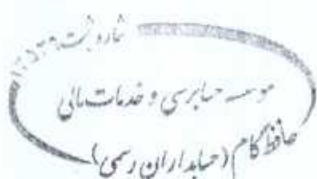 شماره ثبت ۱۲۵۳۶
موسسه حسابرسی و خدمات مالی
حافظ گام (حسابداران رسمی)